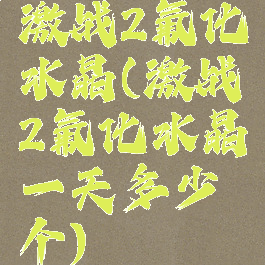 激战2氟化
水晶(激战
2氟化水晶
一天多少
个)